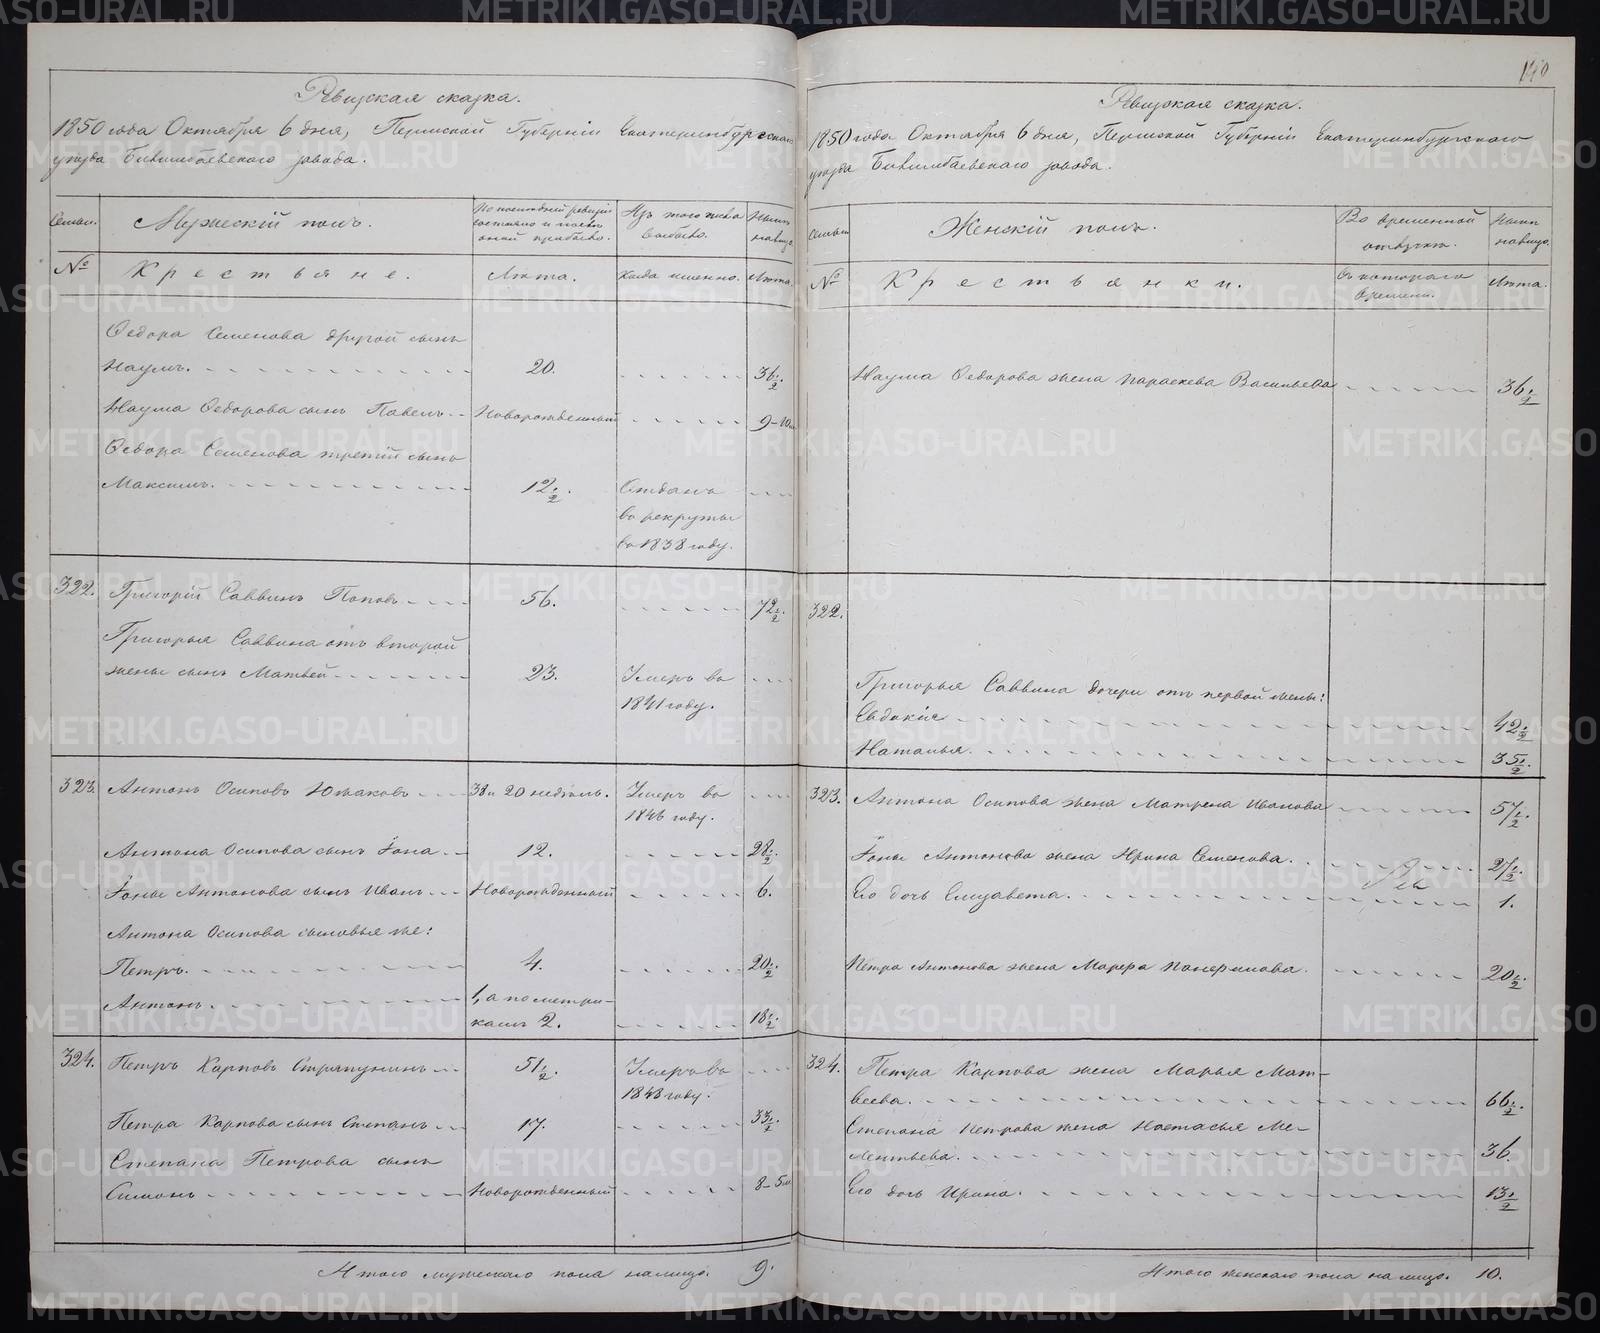 140
Ревизская сказка.
1850 года Октября 6 дня, Пермской Губерніи Екатеринбургскаго
уезда Билимбаевскаго завода.
Семьи. Мужескій полъ. По последней ревизіи состояло и после оной прибыло. Изъ того числа выбыло. Ныне на лицо.
№ Крестьяне. Лета. Когда именно. Лета.
Федора Семенова другой сынъ
Наумъ. 20. 36 1/2.
Наума Федорова сынъ Павелъ Новорожденный 9-10 м
Федора Семенова третій сынъ
Максимъ. 12 1/2. Отданъ
въ рекруты
въ 1838 году.
322. Григорій Саввинъ Поповъ 56. 72 1/2.
Григорья Саввина отъ второй
жены сынъ Матвей 23. Умеръ въ
1841 году.
323. Антонъ Осиповъ Южаковъ 38 и 20 недель. Умеръ въ
1846 году.
Антона Осипова сынъ Іона 12. 28 1/2.
Іоны Антонова сынъ Иванъ Новорожденный 6.
Антона Осипова сыновья же:
Петръ. 4. 20 1/2.
Антонъ. 1, а по метри-
камъ 2. 18 1/2.
324. Петръ Карповъ 51 1/2. Умеръ въ
1848 году.
Петра Карпова сынъ Степанъ 17. 33 1/2.
Степана Петрова сынъ
Симонъ Новорожденный 8-5 м
Итого мужескаго пола на лицо. 9.
Ревизская сказка.
1850 года Октября 6 дня, Пермской Губерніи Екатеринбургскаго
уезда Билимбаевскаго завода.
Семьи Женскій полъ. Во временной отлучке. Ныне на лицо.
№ Крестьянки. Съ котораго времени. Лета.
Наума Федорова жена Параскева Васильева 36 1/2
322.
Григорья Саввина дочери отъ первой жены:
Евдокія 42 1/2
Наталья. 35 1/2.
323. Антона Осипова жена Матрена Иванова 57 1/2.
Іоны Антонова жена Ирина Семенова. 27 1/2.
Его дочь Елизавета. 1.
Петра Антонова жена 20 1/2.
324. Петра Карпова жена Марья Мат-
веева. 66 1/2.
Степана Петрова жена Настасья Ме-
лентьева. 36.
Его дочь Ирина. 13 1/2
Итого женскаго пола на лицо. 10.
METRIKI.GASO-URAL.RU